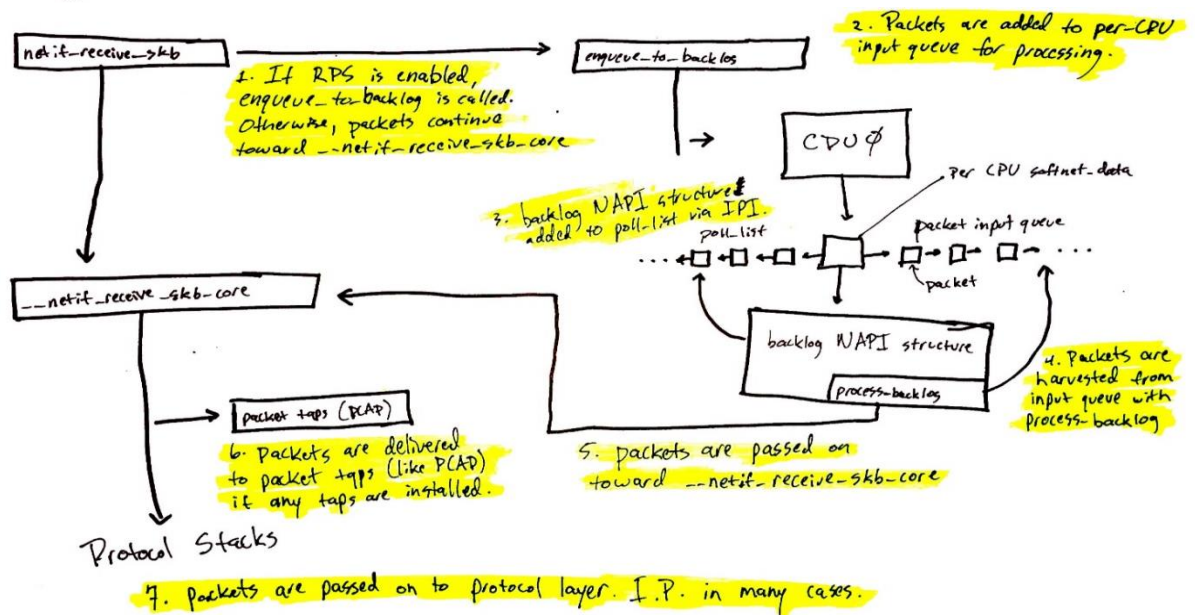 netif_receive_skb
enqueue_to_backlog
2. Packets are added to per-CPU
input queue for processing.
1. If RPS is enabled,
enqueue_to_backlog is called.
Otherwise, packets continue
toward __netif_receive_skb_core
CPU0
Per CPU softnet_data
3. backlog NAPI structure
added to poll_list via IPI.
poll_list
packet input queue
packet
__netif_receive_skb_core
backlog NAPI structure
process_backlog
4. Packets are
harvested from
input queue with
process_backlog
packet taps (PCAP)
6. Packets are delivered
to packet taps (like PCAP)
if any taps are installed.
5. packets are passed on
toward __netif_receive_skb_core
Protocol Stacks
7. packets are passed on to protocol layer. I.P. in many cases.